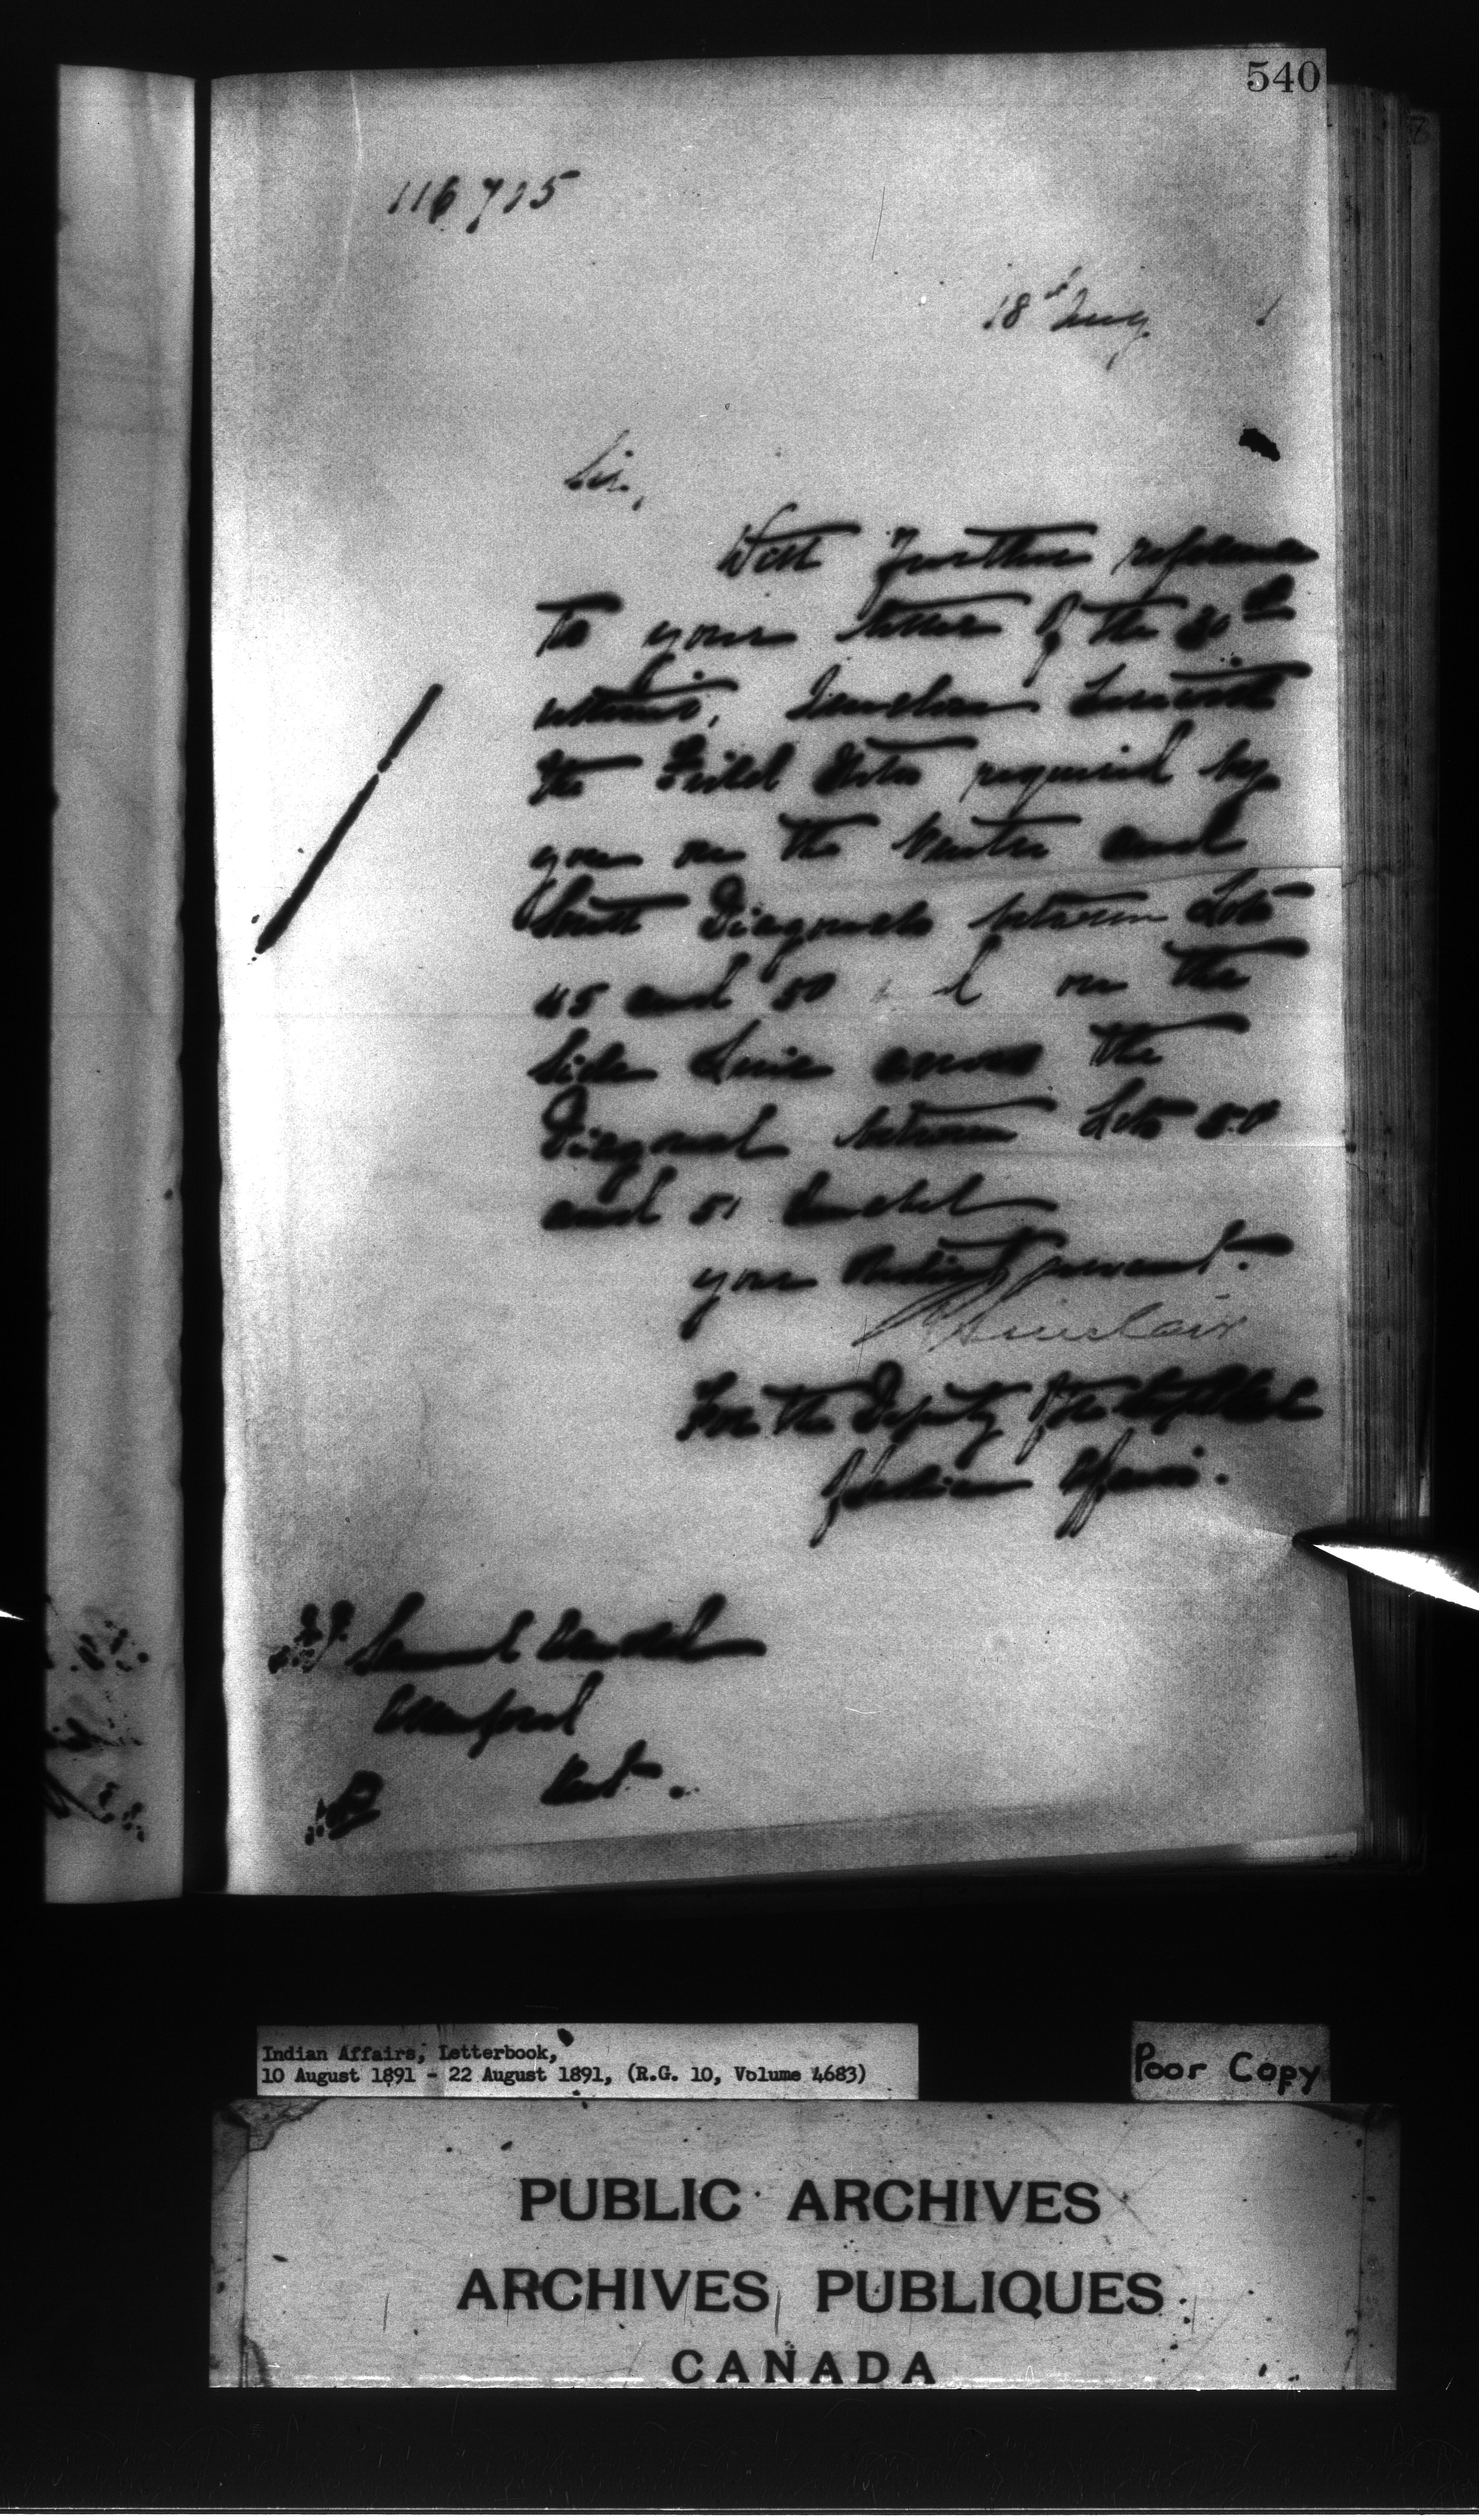 540
116715
18th Aug 1
Sir,
With further reference
to your letter of the 30th
ultimo, I enclose herewith
the Field Notes required by
you on the Centre and
South Diagonals between Lots
45 and 50 on the
Side Line across the
Diagonal between Lots 50
and 51
your Obedient servant.
Sinclair
For the Deputy of the Supt Genl
of Indian Affairs.
Samuel
Ont.
Indian Affairs, Letterbook,
10 August 1891 - 22 August 1891, (R.G. 10, Volume 4683)
Poor Copy
PUBLIC ARCHIVES
ARCHIVES PUBLIQUES
CANADA